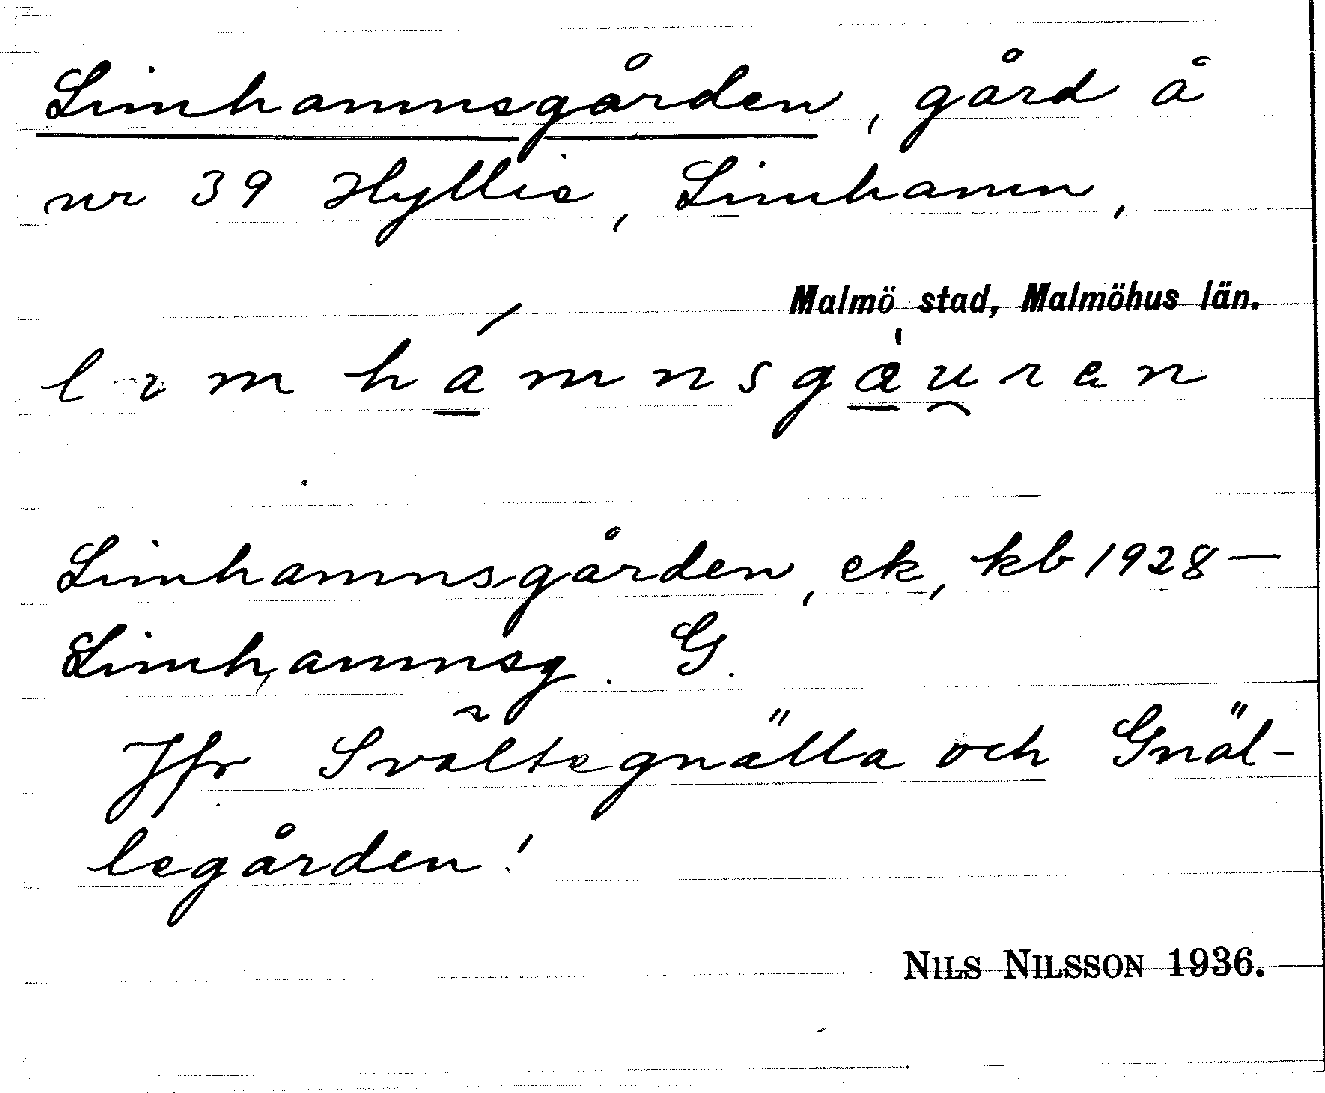 Limhamnsgården, gård å
nr 39 Hyllie, Limhamn,
Malmö stad, Malmöhus län.
limhámnsgæ̍u̯ren
Limhamnsgården, ek, kb 1928—
Limhamnsg. G.
Jfr Svältegnälla och Gnäl-
legården!
NILS NILSSON 1936.